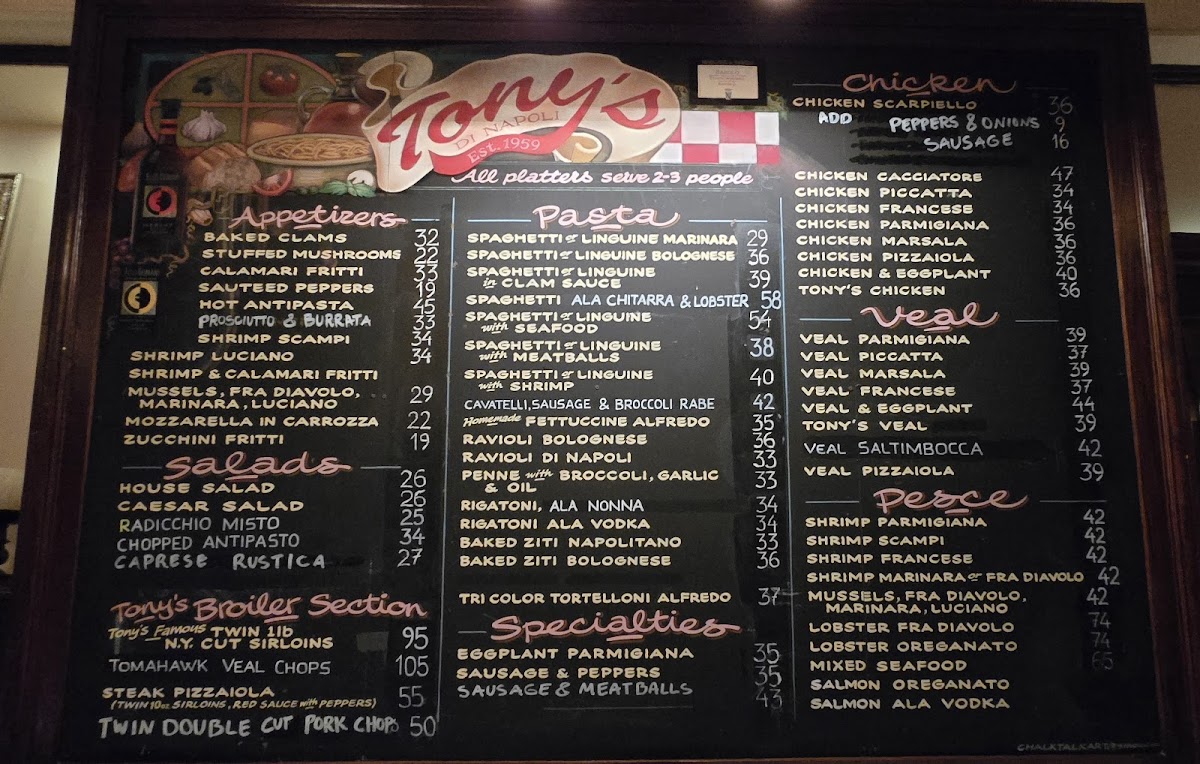 Tony's
DI NAPOLI
Est. 1959
All platters serve 2-3 people
Appetizers
BAKED CLAMS 32
STUFFED MUSHROOMS 22
CALAMARI FRITTI 33
SAUTEED PEPPERS 19
HOT ANTIPASTA 45
PROSCIUTTO & BURRATA 33
SHRIMP SCAMPI 34
SHRIMP LUCIANO 34
SHRIMP & CALAMARI FRITTI
MUSSELS, FRA DIAVOLO, 29
MARINARA, LUCIANO
MOZZARELLA IN CARROZZA 22
ZUCCHINI FRITTI 19
Salads
HOUSE SALAD 26
CAESAR SALAD 26
RADICCHIO MISTO 25
CHOPPED ANTIPASTO 34
CAPRESE RUSTICA 27
Tony's Broiler Section
Tony's Famous TWIN 1lb
N.Y. CUT SIRLOINS 95
TOMAHAWK VEAL CHOPS 105
STEAK PIZZAIOLA 55
(TWIN 10oz. SIRLOINS, RED SAUCE with PEPPERS)
TWIN DOUBLE CUT PORK CHOPS 50
Pasta
SPAGHETTI or LINGUINE MARINARA 29
SPAGHETTI or LINGUINE BOLOGNESE 36
SPAGHETTI or LINGUINE
in CLAM SAUCE 39
SPAGHETTI ALA CHITARRA & LOBSTER 58
SPAGHETTI or LINGUINE 54
with SEAFOOD
SPAGHETTI or LINGUINE 38
with MEATBALLS
SPAGHETTI or LINGUINE 40
with SHRIMP
CAVATELLI, SAUSAGE & BROCCOLI RABE 42
Homemade FETTUCCINE ALFREDO 35
RAVIOLI BOLOGNESE 36
RAVIOLI DI NAPOLI 33
PENNE with BROCCOLI, GARLIC 33
& OIL
RIGATONI, ALA NONNA 34
RIGATONI ALA VODKA 34
BAKED ZITI NAPOLITANO 33
BAKED ZITI BOLOGNESE 36
TRI COLOR TORTELLONI ALFREDO 37
Specialties
EGGPLANT PARMIGIANA 35
SAUSAGE & PEPPERS 35
SAUSAGE & MEATBALLS 43
Chicken
CHICKEN SCARPIELLO 36
ADD PEPPERS & ONIONS 9
SAUSAGE 16
CHICKEN CACCIATORE 47
CHICKEN PICCATTA 34
CHICKEN FRANCESE 34
CHICKEN PARMIGIANA 36
CHICKEN MARSALA 36
CHICKEN PIZZAIOLA 36
CHICKEN & EGGPLANT 40
TONY'S CHICKEN 36
Veal
VEAL PARMIGIANA 39
VEAL PICCATTA 37
VEAL MARSALA 39
VEAL FRANCESE 37
VEAL & EGGPLANT 44
TONY'S VEAL 39
VEAL SALTIMBOCCA 42
VEAL PIZZAIOLA 39
Pesce
SHRIMP PARMIGIANA 42
SHRIMP SCAMPI 42
SHRIMP FRANCESE 42
SHRIMP MARINARA or FRA DIAVOLO 42
MUSSELS, FRA DIAVOLO, 42
MARINARA, LUCIANO
LOBSTER FRA DIAVOLO 74
LOBSTER OREGANATO 74
MIXED SEAFOOD 65
SALMON OREGANATO
SALMON ALA VODKA